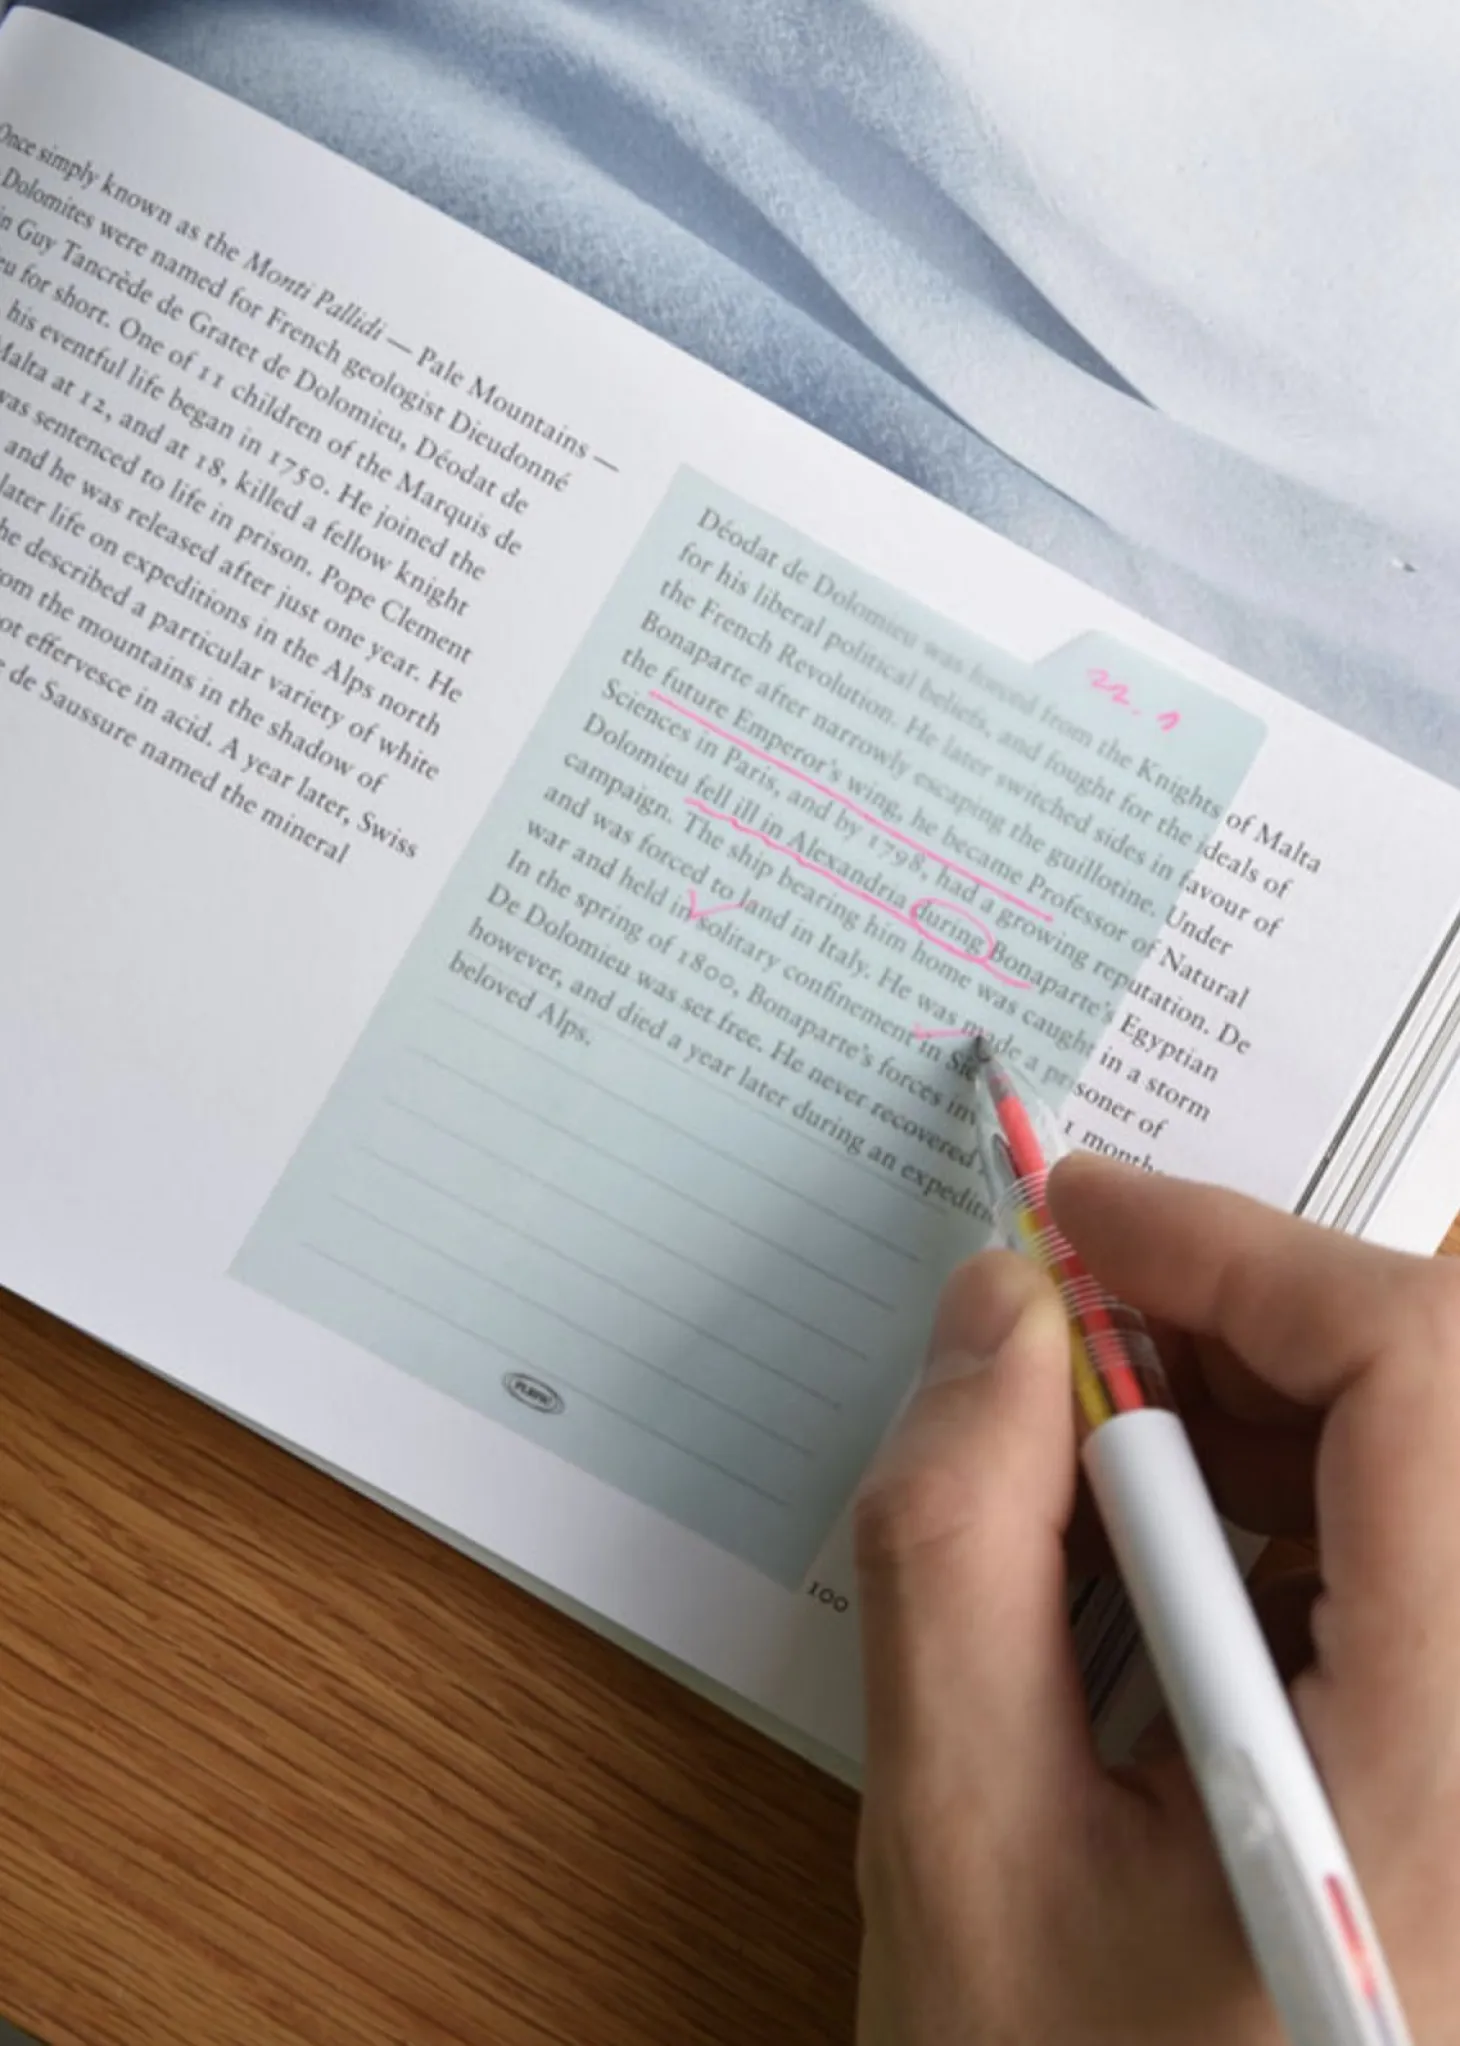 Once simply known as the Monti Pallidi — Pale Mountains —
Dolomites were named for French geologist Dieudonné
Guy Tancrède de Gratet de Dolomieu, Déodat de
for short. One of 11 children of the Marquis de
his eventful life began in 1750. He joined the
Malta at 12, and at 18, killed a fellow knight
was sentenced to life in prison. Pope Clement
and he was released after just one year. He
later life on expeditions in the Alps north
he described a particular variety of white
from the mountains in the shadow of
not effervesce in acid. A year later, Swiss
de Saussure named the mineral
22. 1
Déodat de Dolomieu was forced from the Knights of Malta
for his liberal political beliefs, and fought for the ideals of
the French Revolution. He later switched sides in favour of
Bonaparte after narrowly escaping the guillotine. Under
the future Emperor's wing, he became Professor of Natural
Sciences in Paris, and by 1798, had a growing reputation. De
Dolomieu fell ill in Alexandria during Bonaparte's Egyptian
campaign. The ship bearing him home was caught in a storm
and was forced to land in Italy. He was made a prisoner of
war and held in solitary confinement in months
In the spring of 1800, Bonaparte's forces
De Dolomieu was set free. He never recovered
however, and died a year later during an
beloved Alps.
100